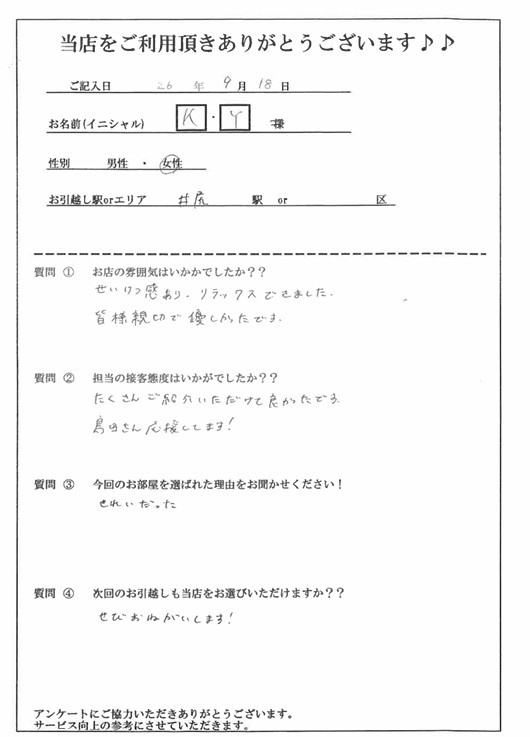 当店をご利用頂きありがとうございます♪♪
ご記入日 26 年 9 月 18 日
お名前(イニシャル) K ・ Y 様
性別 男性 ・ 女性
お引越し駅orエリア 井尻 駅 or 区
質問 ① お店の雰囲気はいかかでしたか??
せいけつ感あり、リラックスできました。
皆様親切で優しかったです。
質問 ② 担当の接客態度はいかがでしたか??
たくさんご紹介いただけて良かったです。
島田さん応援してます!
質問 ③ 今回のお部屋を選ばれた理由をお聞かせください!
きれいだった
質問 ④ 次回のお引越しも当店をお選びいただけますか??
ぜひおねがいします!
アンケートにご協力いただきありがとうございます。
サービス向上の参考にさせていただきます。